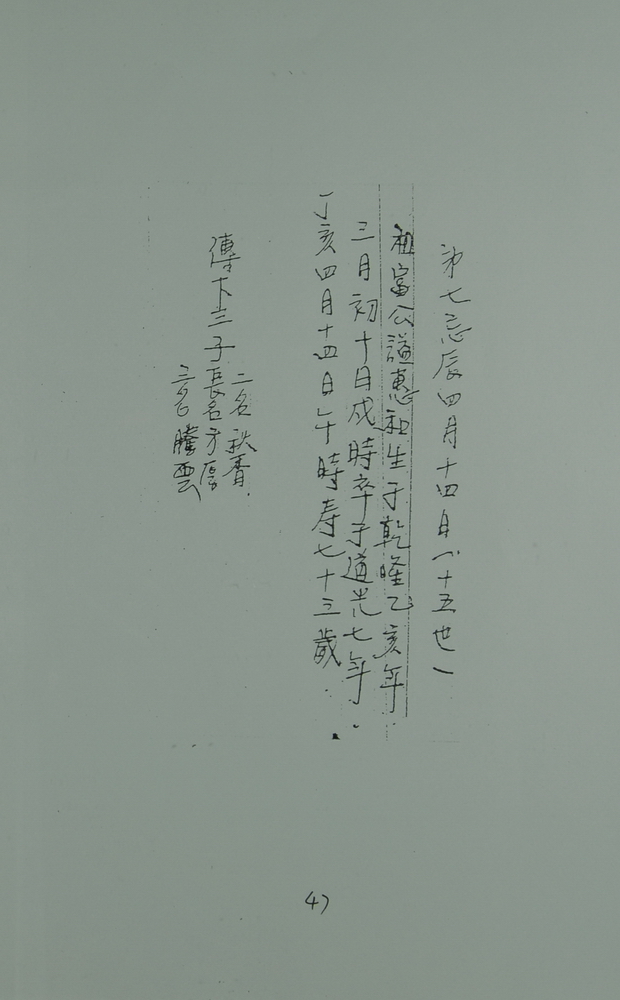 第七忌辰四月十四日(十五世)
祖富公諡惠和生于乾隆乙亥年
三月初十日戌時卒于道光七年
丁亥四月十四日午時寿七十三歲
傳下三子長名才厚
二名秋香
三名騰雲
47